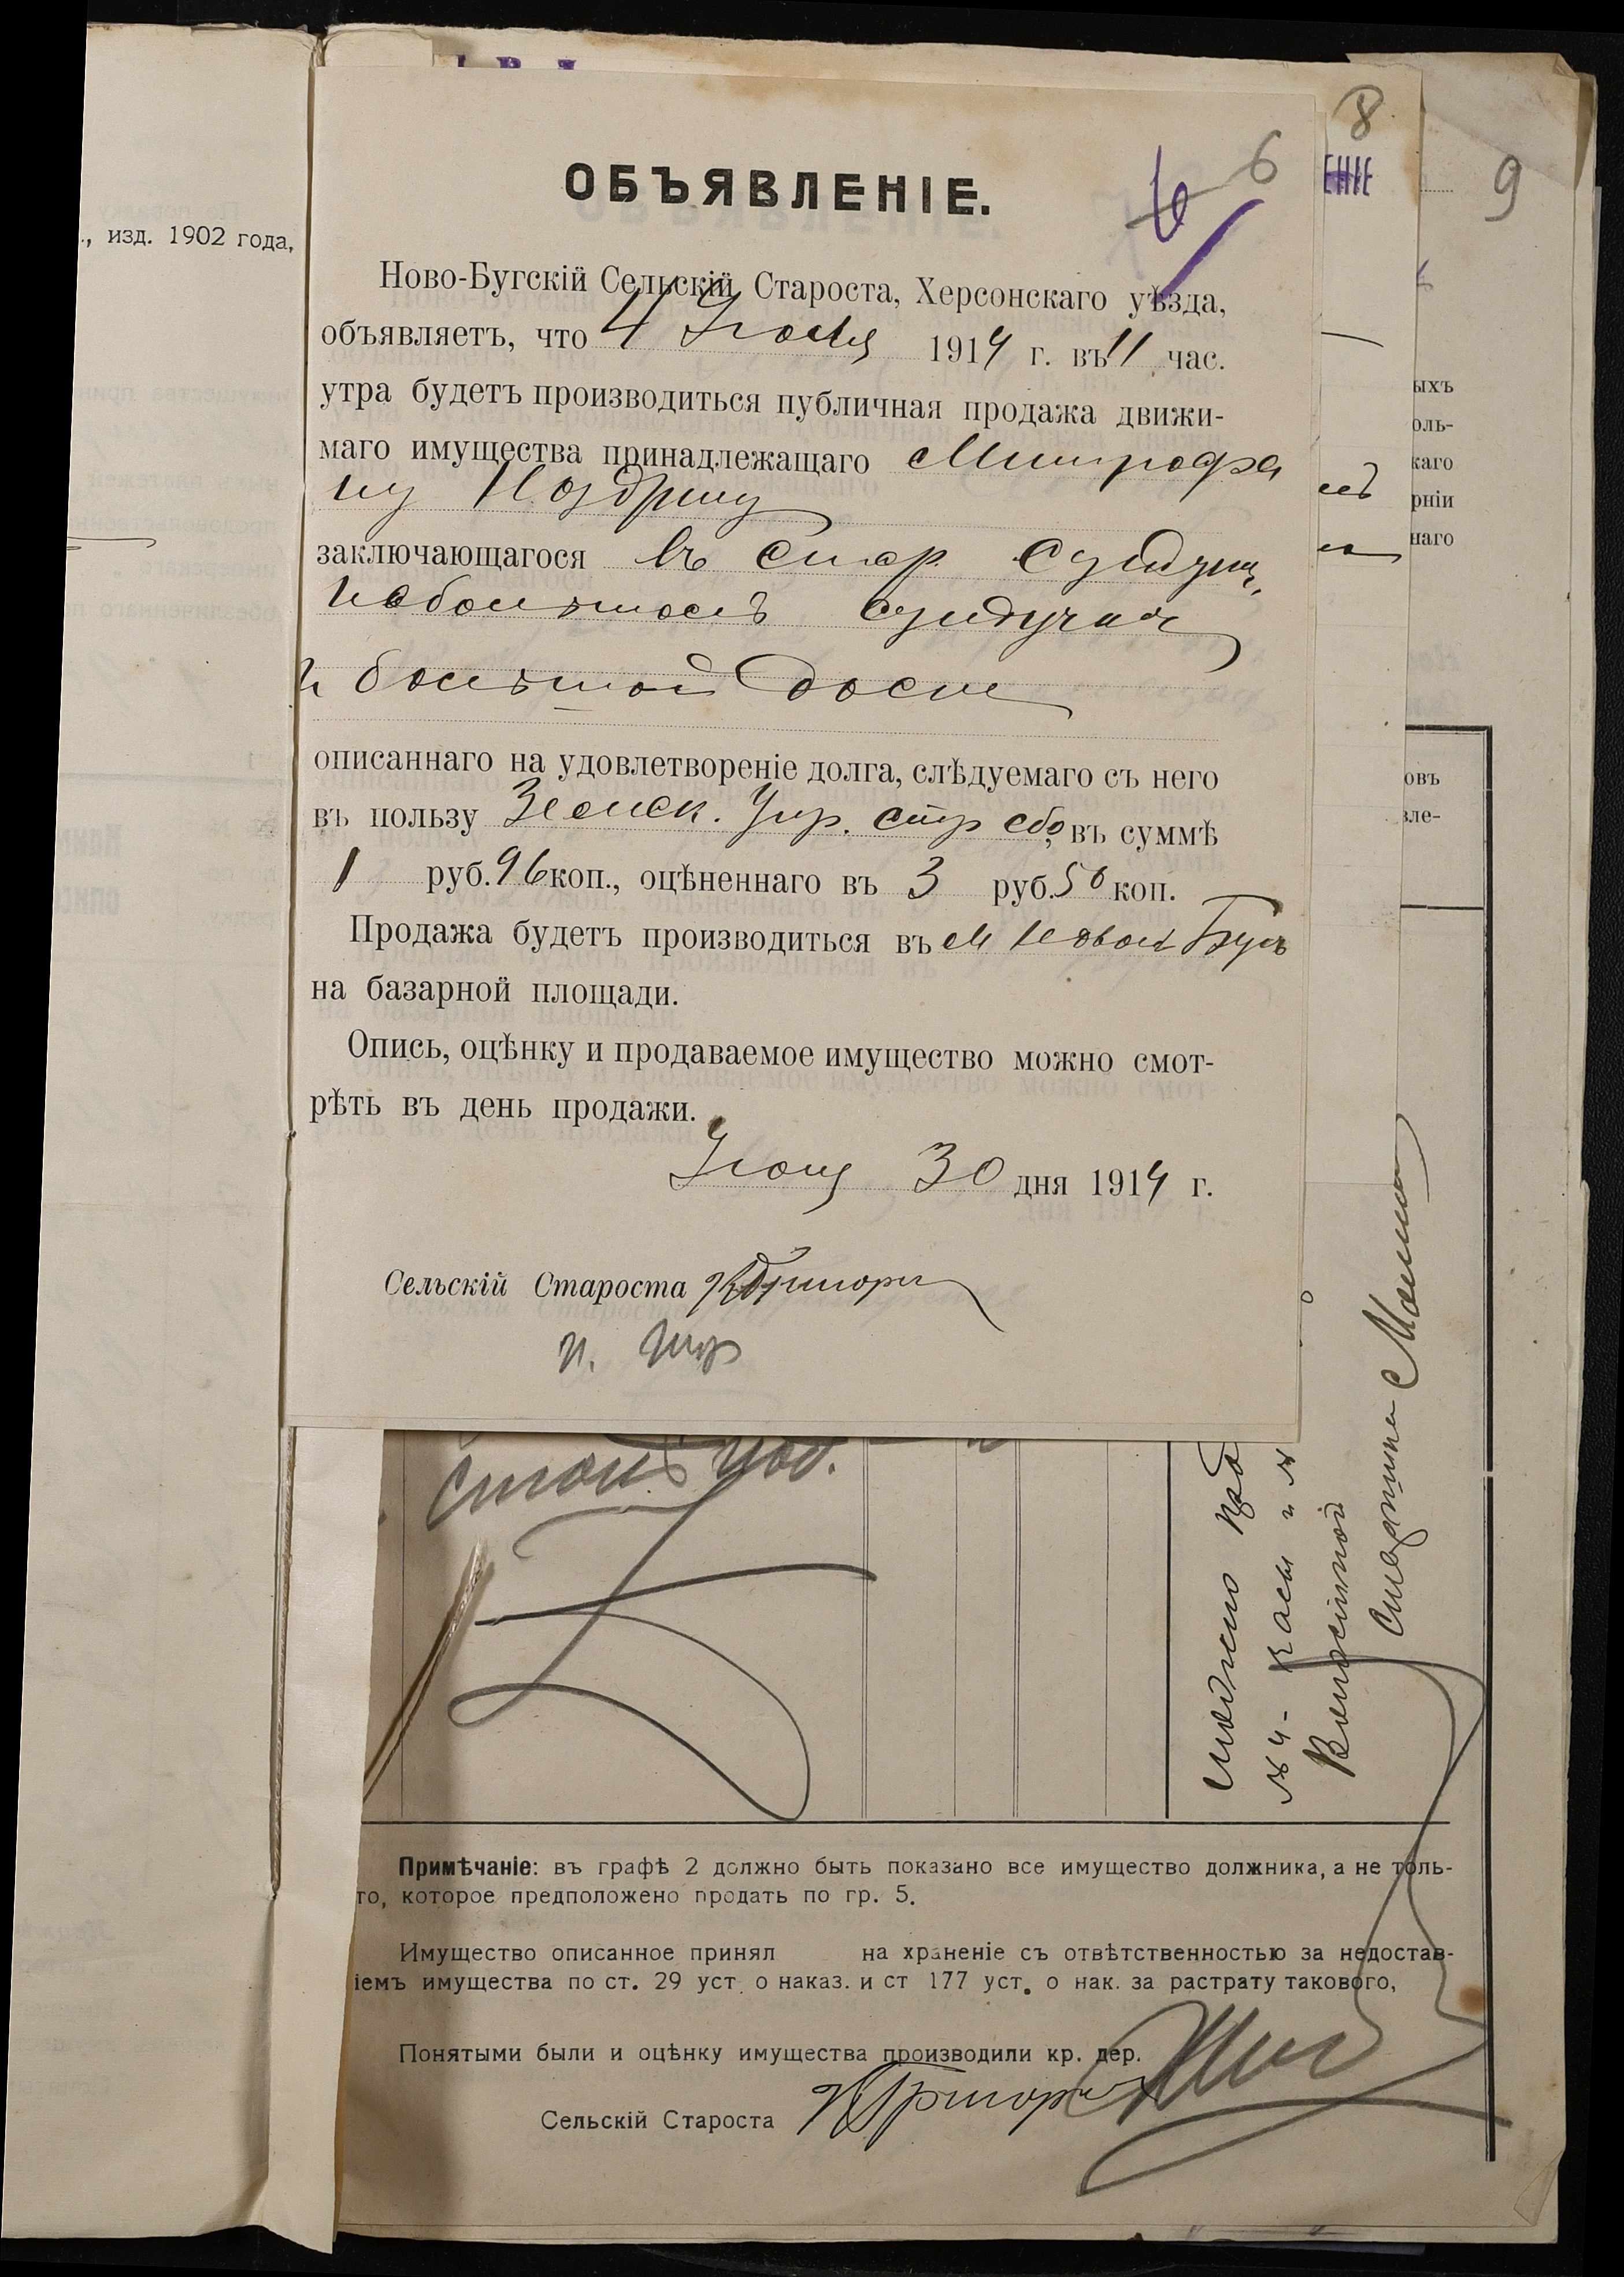 , изд. 1902 года,
8
6
6
9
ЕНІЕ
ОБЪЯВЛЕНІЕ.
Ново-Бугскій Сельскій Староста, Херсонскаго уѣзда,
объявляетъ, что 4 Июля 1914 г. въ 11 час.
утра будетъ производиться публичная продажа движи-
маго имущества принадлежащаго Митрофа
ну Ноздрину
заключающагося въ стар. сундук,
небольшомъ сундучка
и большой доски
описаннаго на удовлетвореніе долга, слѣдуемаго съ него
въ пользу Земск. Упр. стр сбо, въ суммѣ
1 руб. 96 коп., оцѣненнаго въ 3 руб. 50 коп.
Продажа будетъ производиться въ м Новой Бугъ
на базарной площади.
Опись, оцѣнку и продаваемое имущество можно смот-
рѣть въ день продажи.
Июня 30 дня 1914 г.
Сельскій Староста
ыхъ
оль-
каго
рніи
наго
овъ
вле-
Примѣчаніе: въ графѣ 2 должно быть показано все имущество должника, а не толь-
то, которое предположено продать по гр. 5.
Имущество описанное принял на храненіе съ отвѣтственностью за недостав-
іемъ имущества по ст. 29 уст. о наказ. и ст 177 уст. о нак. за растрату такового,
Понятыми были и оцѣнку имущества производили кр. дер.
Сельскій Староста